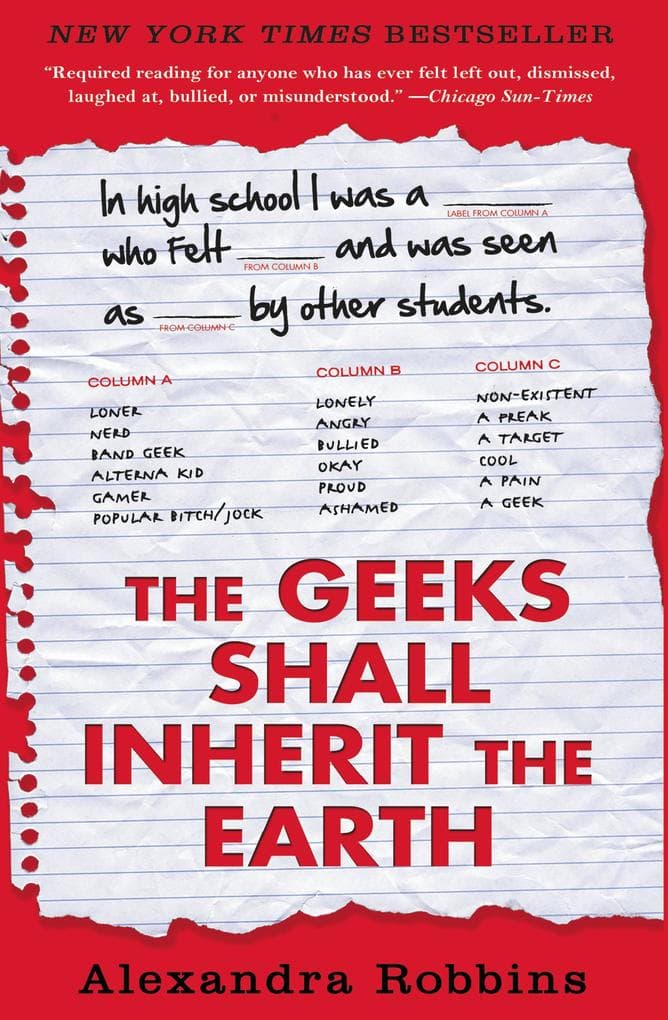 NEW YORK TIMES BESTSELLER
“Required reading for anyone who has ever felt left out, dismissed,
laughed at, bullied, or misunderstood.” —Chicago Sun-Times
In high school I was a ________
LABEL FROM COLUMN A
who Felt ________ and was seen
FROM COLUMN B
as ________ by other students.
FROM COLUMN C
COLUMN A
LONER
NERD
BAND GEEK
ALTERNA KID
GAMER
POPULAR BITCH/JOCK
COLUMN B
LONELY
ANGRY
BULLIED
OKAY
PROUD
ASHAMED
COLUMN C
NON-EXISTENT
A FREAK
A TARGET
COOL
A PAIN
A GEEK
THE GEEKS
SHALL
INHERIT THE
EARTH
Alexandra Robbins